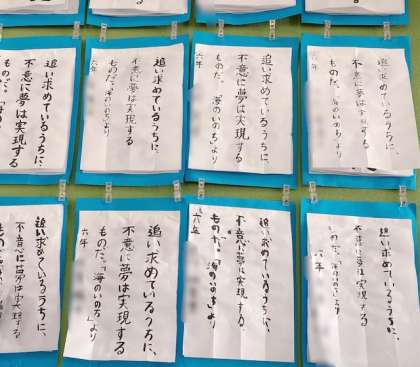 追い求めているうちに、
不意に夢は実現する
ものだ。「海の
追い求めているうちに、
不意に夢は実現する
ものだ。「海のいのち」より
六年
追い求めているうちに、
不意に夢は実現する
ものだ。「海のいのち」より
六年
追い求めているうちに、
不意に夢は実現する
ものだ。「海のいのち」より
六年
追い求めているうちに、
不意に夢は実現する
追い求めているうちに、
不意に夢は実現する
ものだ。「海のいのち」より
六年
追い求めているうちに、
不意に夢は実現する。
ものだ。「海のいのち」より
六年
追い求めているうちに、
不意に夢は実現する
ものだ。「海のいのち」より
六年